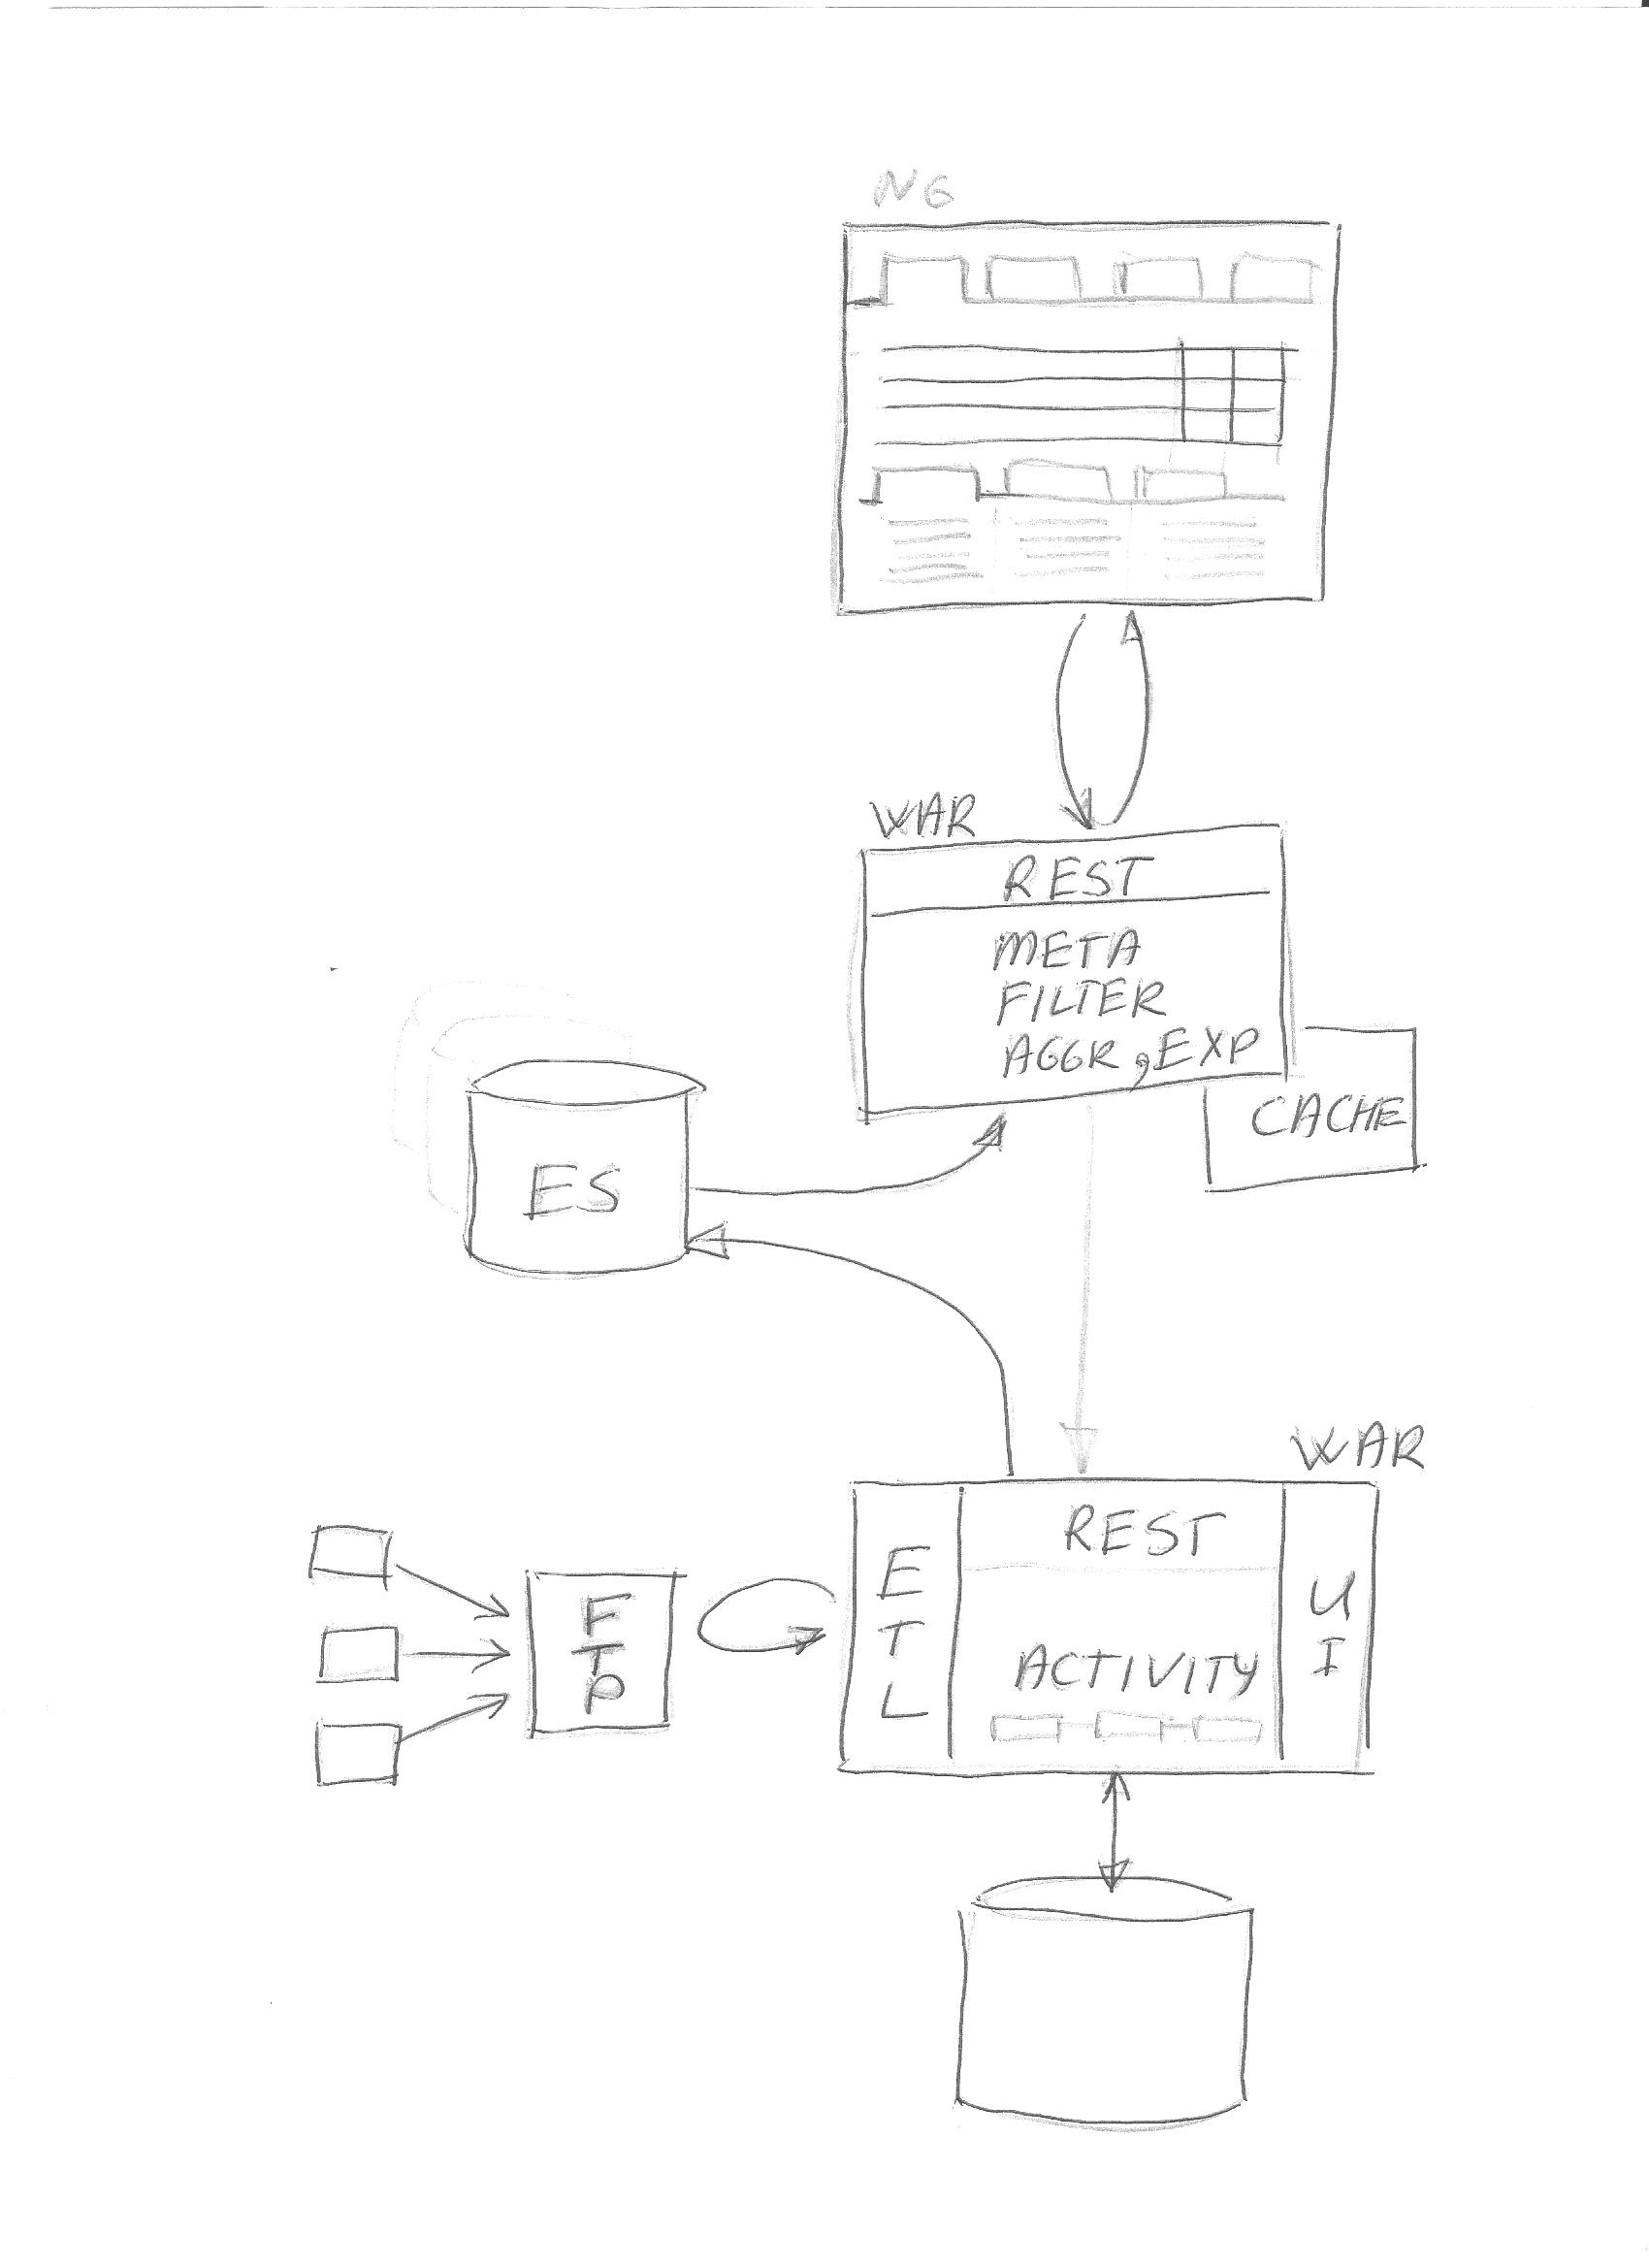 NG
WAR
REST
META
FILTER
AGGR, EXP
CACHE
ES
WAR
REST
ETL
UI
FTP
ACTIVITY